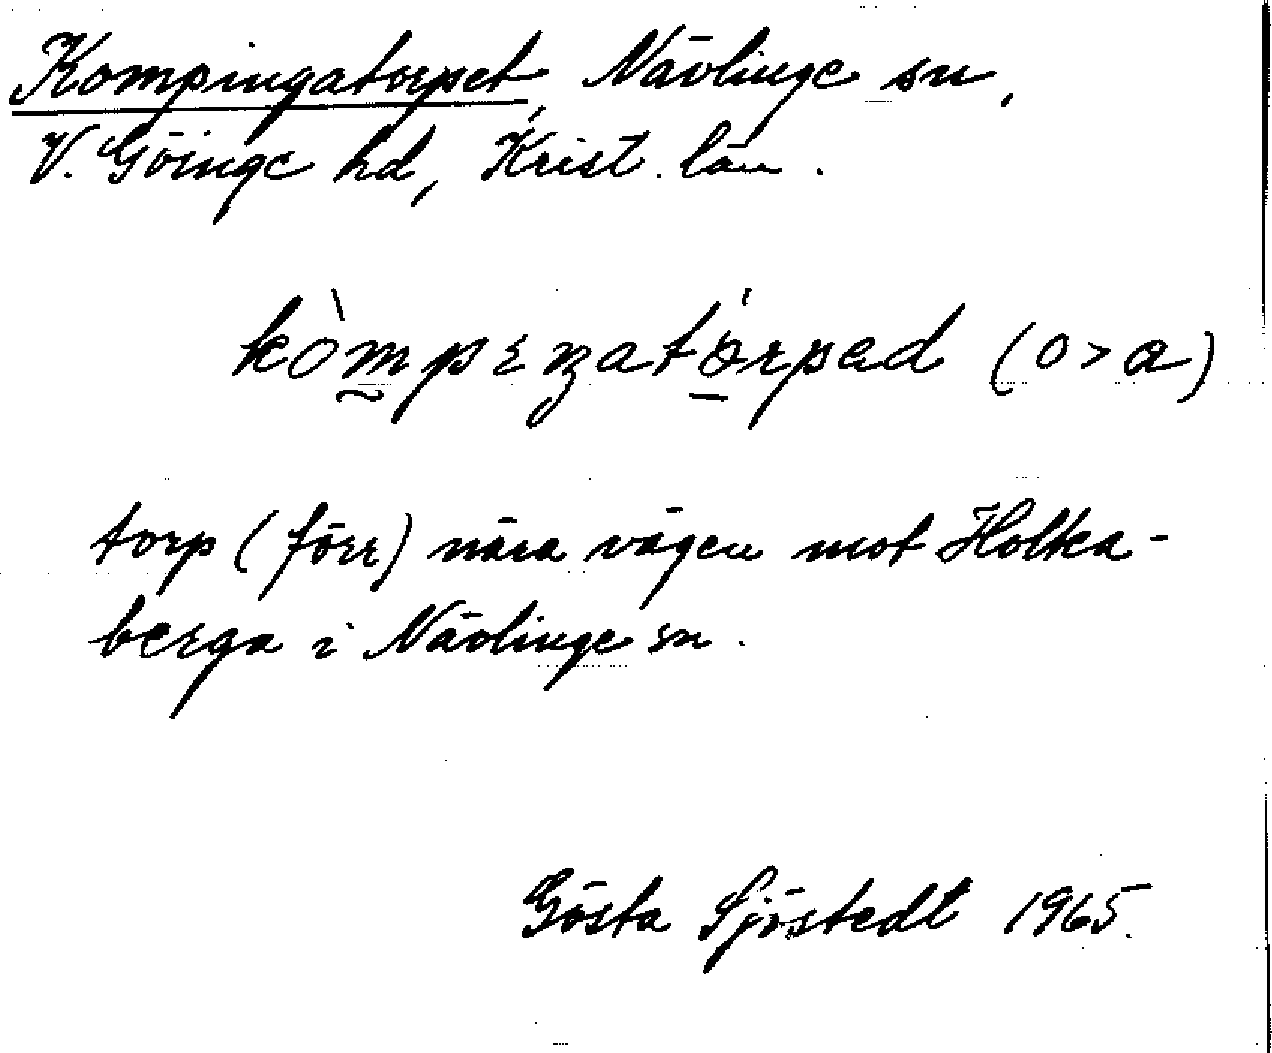 Kompingatorpet, Nävlinge sn,
V. Göinge hd, Krist. län.
torp (förr) nära vägen mot Holka-
berga i Nävlinge sn.
Gösta Sjöstedt 1965.